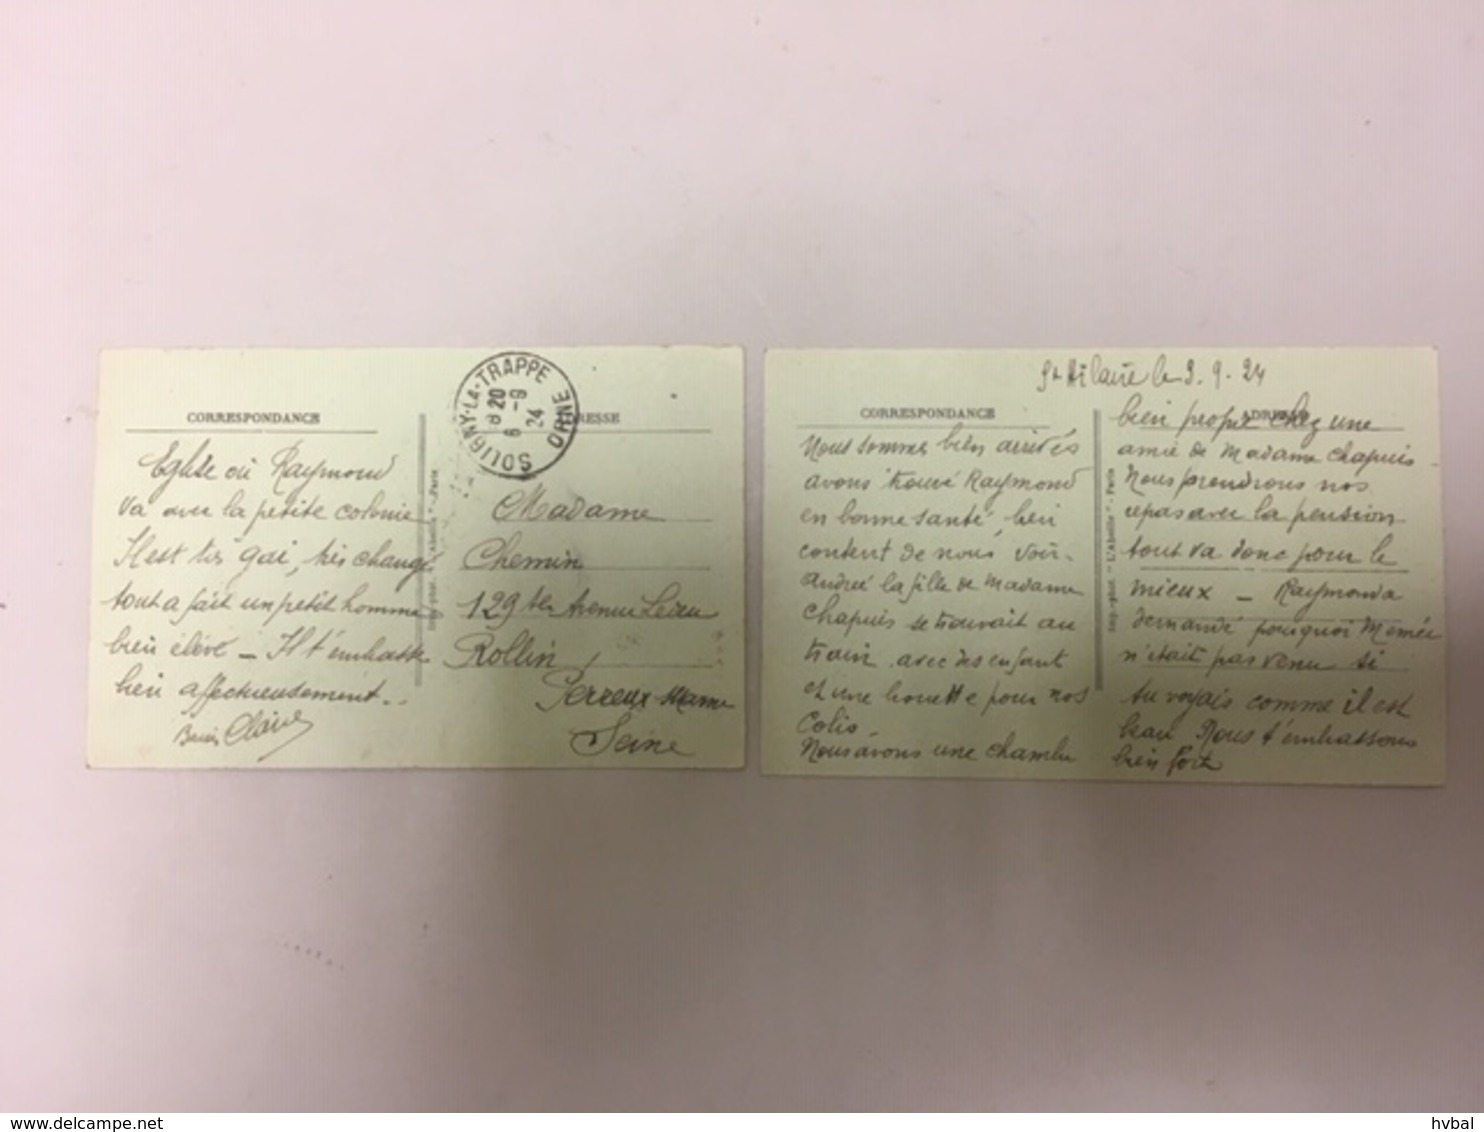 CORRESPONDANCE
Eglise où Raymond
va avec la petite colonie
Il est très gai, très changé
tout a fait un petit homme
bien élévé - Il t'embrasse
bien affectueusement..
Claire
Imp.-phot. "L'Abeille" - Paris
SOLIGNY-LA-TRAPPE
8 20
6 - 9
24
ORNE
ADRESSE
Madame
Chemin
129 ter Avenue Ledru
Rollin
Perreux Marne
Seine
St Hilaire le 3. 9. 24
CORRESPONDANCE
Nous sommes bien arrivés
avons trouvé Raymond
en bonne santé, bien
content de nous voir.
Andrée la fille de Madame
Chapuis se trouvait au
train avec des enfants
et une brouette pour nos
Colis.
Nous avons une chambre
Imp.-phot. - L'Abeille" - Paris
ADRESSE
bien propre chez une
amie de Madame Chapuis.
Nous prendrons nos
repas avec la pension
tout va donc pour le
mieux - Raymond a
demandé pourquoi Mémée
n'était pas venu si
tu voyais comme il est
beau Nous t'embrassons
bien fort
www.delcampe.net
hvbal